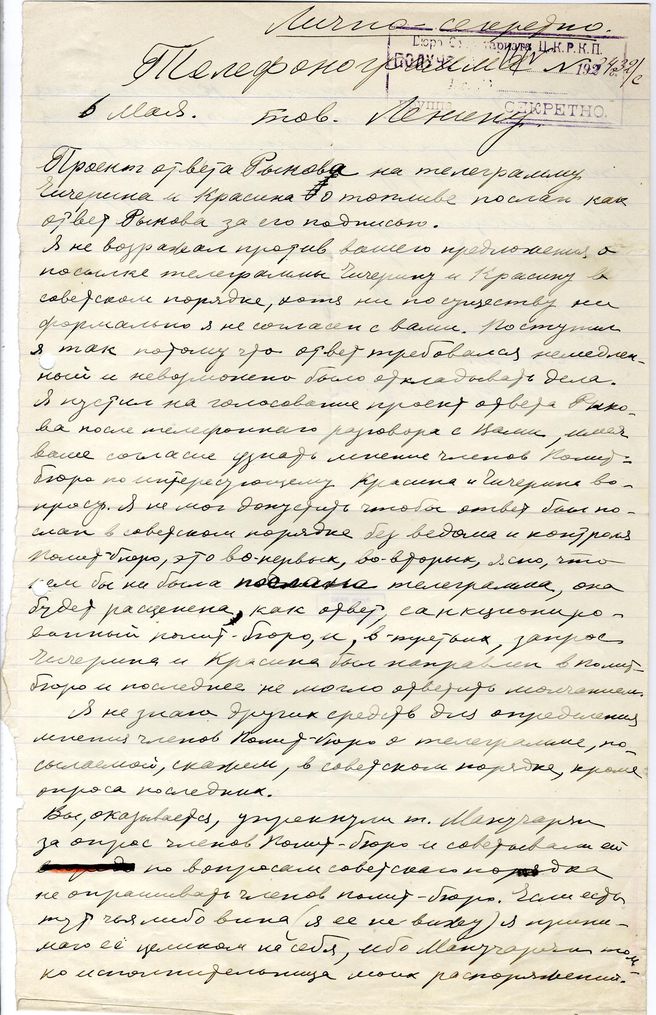 Лично-секретно.
Бюро Секретариата Ц.К.Р.К.П.
Телефонограмма
192
СЕКРЕТНО.
6 мая. тов. Ленину.
Проект ответа Рыкова на телеграмму
Чичерина и Красина о топливе послан как
ответ Рыкова за его подписью.
Я не возражал против вашего предложения о
посылке телеграммы Чичерину и Красину в
советском порядке, хотя ни по существу ни
формально я не согласен с вами. Поступил
я так потому что ответ требовался немедлен-
ный и невозможно было откладывать дела.
Я пустил на голосование проект ответа Рыко-
ва после телефонного разговора с Вами, имея
ваше согласие узнать мнение членов Полит-
бюро по интересующему Красина и Чичерина во-
просу. Я не мог допустить чтобы ответ был по-
слан в советском порядке без ведома и контроля
Полит-бюро, это во-первых, во-вторых, ясно, что
кем бы ни была послана телеграмма, она
будет расценена, как ответ, санкциониро-
ванный полит-бюро, и, в-третьих, запрос
Чичерина и Красина был направлен в полит-
бюро и последнее не могло ответить молчанием.
Я не знаю других средств для определения
мнения членов Полит-бюро о телеграмме, по-
сылаемой, скажем, в советском порядке, кроме
опроса последних.
Вы, оказывается, упрекнули т. Манучарьян
за опрос членов Полит-бюро и советовали ей
по вопросам советского порядка
не опрашивать членов полит-бюро. Если есть
тут чья либо вина (я ее не вижу) я прини-
маю её целиком на себя, ибо Манучарьян толь-
ко исполнительница моих распоряжений.